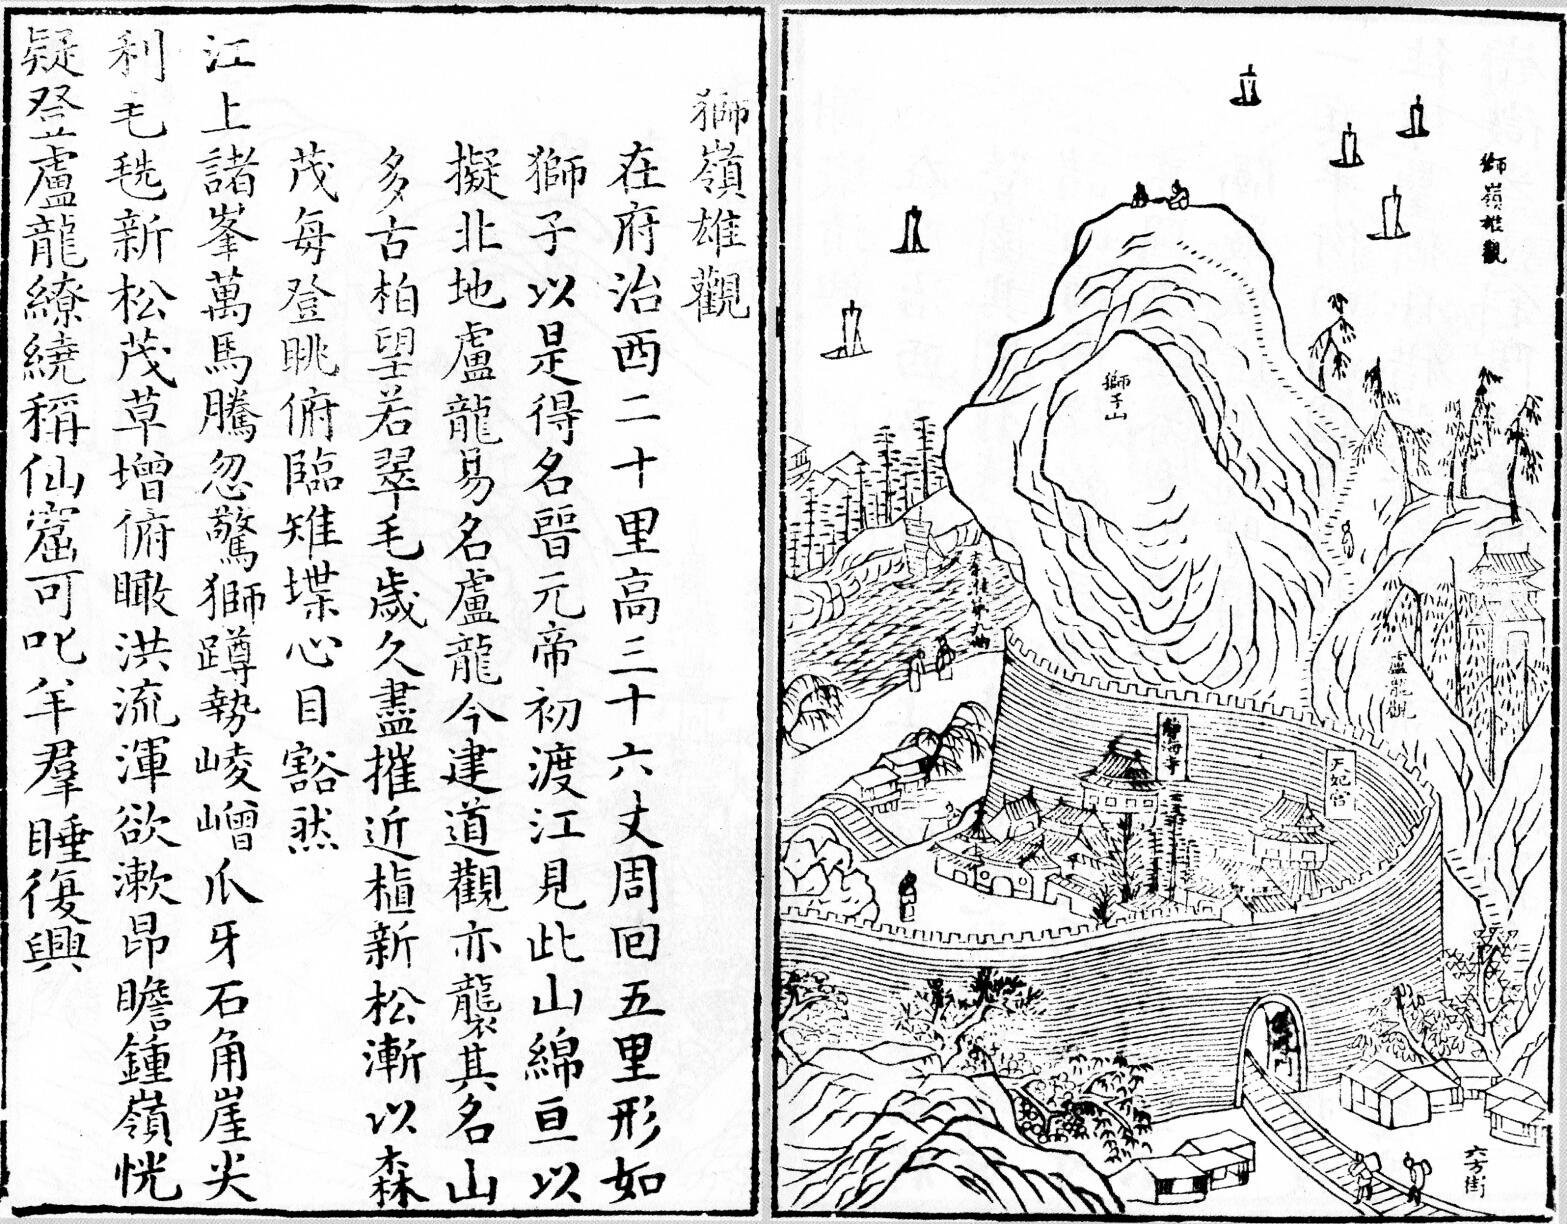 獅嶺雄觀
獅子山
盧龍觀
靜海寺
天妃宮
六方街
獅嶺雄觀
在府治西二十里高三十六丈周回五里形如
獅子以是得名晉元帝初渡江見此山綿亘以
擬北地盧龍易名盧龍今建道觀亦襲其名山
多古柏望若翠毛歲久盡摧近植新松漸以森
茂每登眺俯臨雉堞心目豁然
江上諸峯萬馬騰忽驚獅蹲勢崚嶒爪牙石角崖尖
利毛毨新松茂草增俯瞰洪流渾欲漱昂瞻鍾嶺恍
疑登盧龍繚繞稱仙窟可叱羊羣睡復興